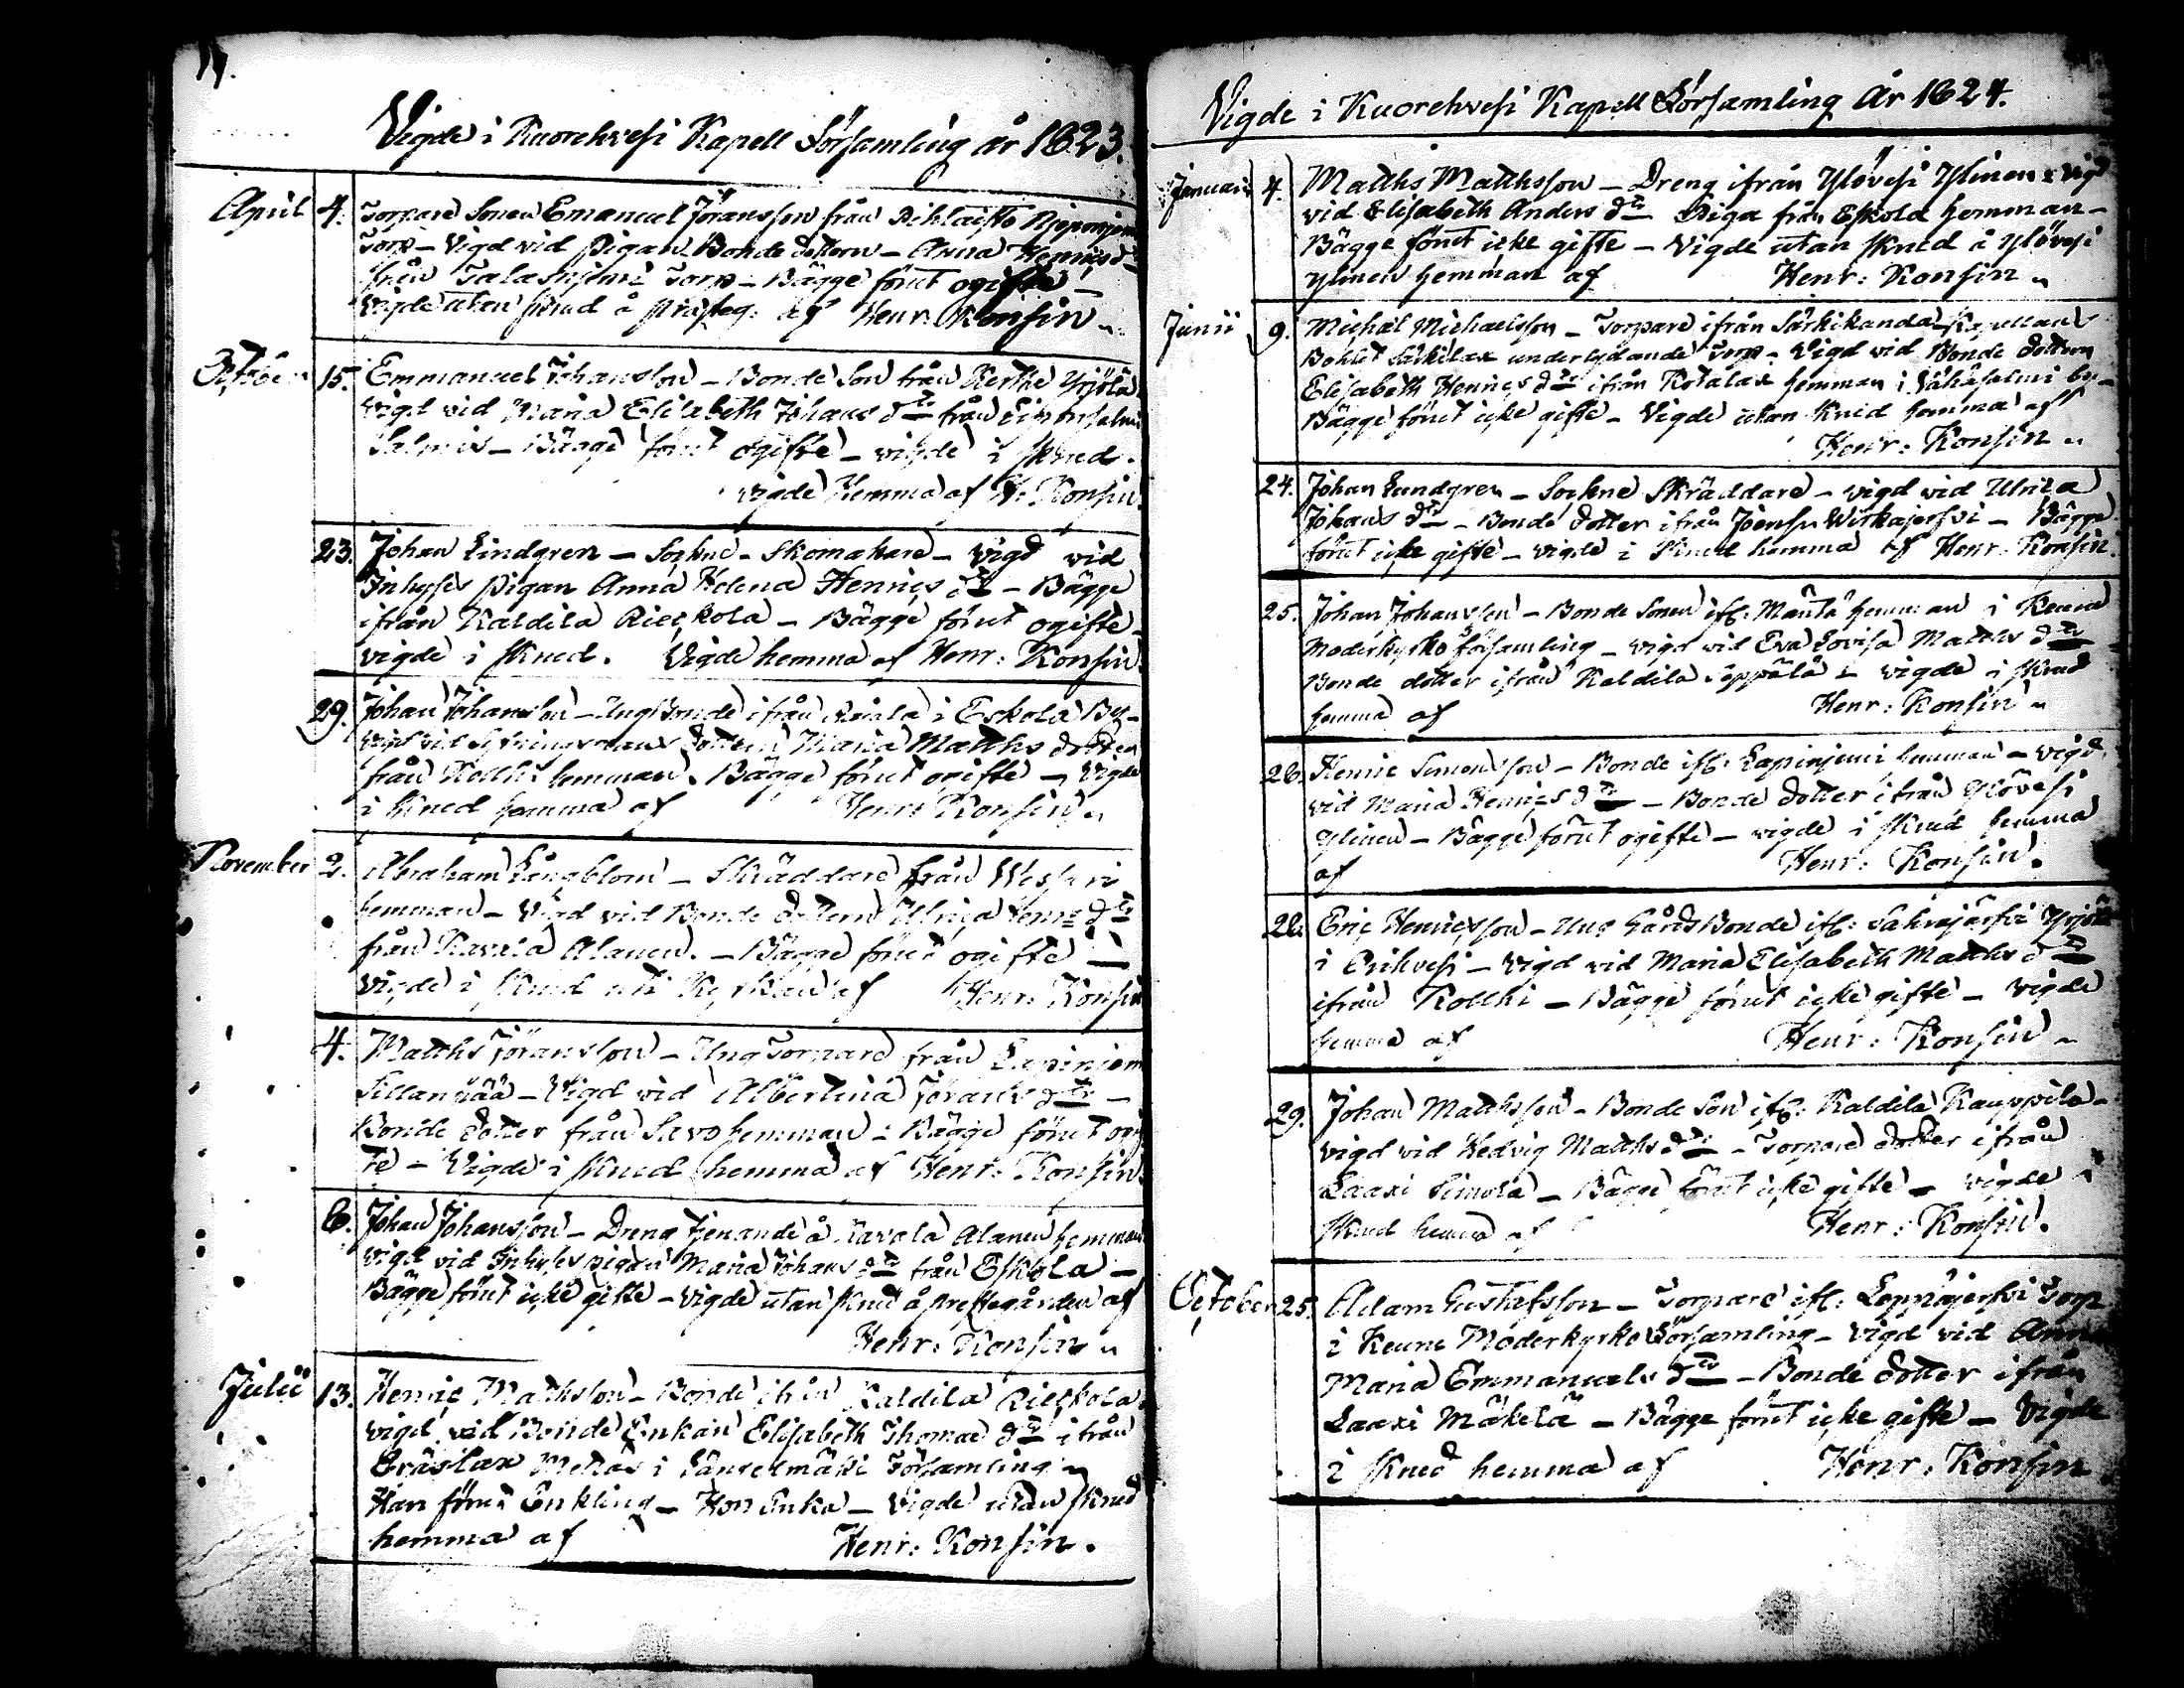 14.
Vigde i Kuorehvesi Kapell Församling år 1823.
April 4. Torpare Sonen Emanuel Jöransson från
Torp – Vigd vid Pigan Bonde dottern – Anna Henricsd:r
från Torp – Bägge förut ogifte –
Vigde utan skrud å Prästeg: af Henr: Konsin
October 15. Emmanuel Johansson – Bonde Son från Kerthe Yrjölä
vigd vid Maria Elisabeth Johans d:r från
Salmis – Bägge förut ogifte – vigde i skrud.
vigde Hemma af H: Konsin
23. Johan Lindgren – Sockne – Skomakare – vigd vid
Inhyses Pigan Anna Helena Henrics d:r – Bägge
ifrån Kaldila Rieckola – Bägge förut ogifte –
vigde i skrud. Vigde hemma af Henr: Konsin
29. Johan Johansson – Ung Bonde ifrån i Eskola By –
vigd vid dottern Maria Matths dotter
från Kolkki hemman. Bägge förut ogifte – Vigde
i skrud hemma af Henr: Konsin
November 2. Abraham Långblom – Skräddare från
hemman – Vigd vid Bonde dottern Ulrica Henrs d:r
från Alanen. – Bägge förut ogifte –
Vigde i skrud uti Kyrkan af Henr: Konsin
4. Matths Jöransson – Ung Torpare från Lapinjem
Sillanpää – Vigd vid Albertina Jörans d:r –
Bonde dotter från Savo hemman – Bägge förut ogif
te – Vigde i skrud hemma af Henr: Konsin
6. Johan Johansson – Dreng tjenande å Alanen hemman
vigd vid Inhyses pigan Maria Johans d:r från Eskola –
Bägge förut icke gifte – vigde utan skrud å prestegården af
Henr: Konsin
Julii 13. Henric Mathsson – Bonde ifrån Kaldila Rieckola
vigd vid Bonde Enkan Elisabeth Thomae d:r ifrån
Eräslax Mettäs i Längelmäki Församling –
Han förut Enkling – Hon Enka – vigde utan skrud
hemma af Henr: Konsin.
Vigde i Kuorehvesi Kapell Församling År 1824.
Januarii 4. Matths Matthsson – Dreng ifrån Ylövesi Ylinen – vigd
vid Elisabeth Anders d:r Piga från Eskola hemman –
Bägge förut icke gifte – Vigde utan skrud å Ylövesi
Ylinen hemman af Henr: Konsin
Junii 9. Michäl Michaelsson – Torpare ifrån Särkikanda Kapellans
Bohlet Särkilax underlydande Torp – Vigd vid Bonde dottern
Elisabeth Henrics d:r ifrån Kotalax hemman i Vähäsalmi by –
Bägge förut icke gifte – Vigde utan skrud hemma af
Henr: Konsin
24. Johan Lundgren – Sockne Skräddare – vigd vid Ulrica
Johans d:r – Bonde dotter ifrån Joensu Wirkajerfvi – Bägge
förut icke gifte – vigde i skrud hemma af Henr: Konsin
25. Johan Johansson – Bonde Sonen ifr: Mäntä hemman i Keuru
Moderkyrko församling – vigd vid Eva Lovisa Matths d:r
Bonde dotter ifrån Kaldila Seppälä – vigde i skrud
hemma af Henr: Konsin
26. Henric Simonsson – Bonde ifr: Lapinjemi hemman – vigd
vid Maria Henrics d:r – Bonde dotter ifrån Ylövesi
Ylinen – Bägge förut ogifte – vigde i skrud hemma
af Henr: Konsin.
28. Eric Henricsson – Ung Gårds Bonde ifr: Yrjölä
i Erihvesi – Vigd vid Maria Elisabeth Matths d:r
ifrån Kolkki – Bägge förut icke gifte – vigde
hemma af Henr: Konsin
29. Johan Matthsson – Bonde Son ifr: Kaldila Kauppila –
vigd vid Hedvig Matths d:r – Torpare dotter ifrån
Laaxi Simola – Bägge förut icke gifte – vigde i
skrud hemma af Henr: Konsin.
October 25. Adam Gustafsson – Torpare ifr: Leppäjerfvi Torp
i Keuru Moderkyrko Församling – Vigd vid Anna
Maria Emmanuels d:r – Bonde dotter ifrån
Laaxi Mäkelä – Bägge förut icke gifte – Vigde
i skrud hemma af Henr: Konsin